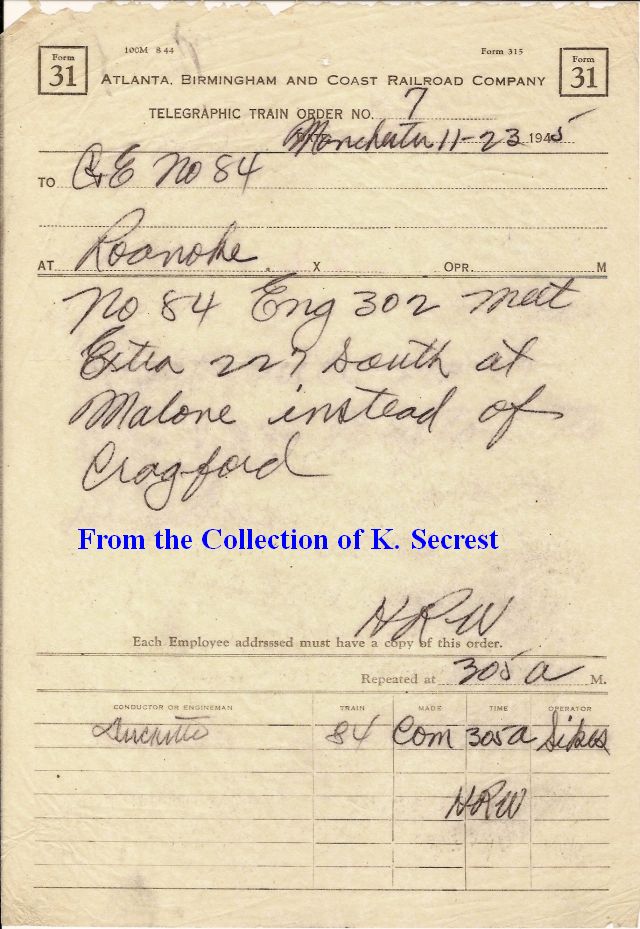 100M 8 44 Form 315
Form 31 Form 31
ATLANTA, BIRMINGHAM AND COAST RAILROAD COMPANY
TELEGRAPHIC TRAIN ORDER NO. 7
DATE Manchester 11-23 1945
TO C&E No 84
AT Roanoke X OPR. M
No 84 Eng 302 meet
Extra 227 South at
Malone instead of
Cragford
From the Collection of K. Secrest
HRW
Each Employee addrsssed must have a copy of this order.
Repeated at 305 a M.
CONDUCTOR OR ENGINEMAN TRAIN MADE TIME OPERATOR
84 Com 305a Sikes
HRW